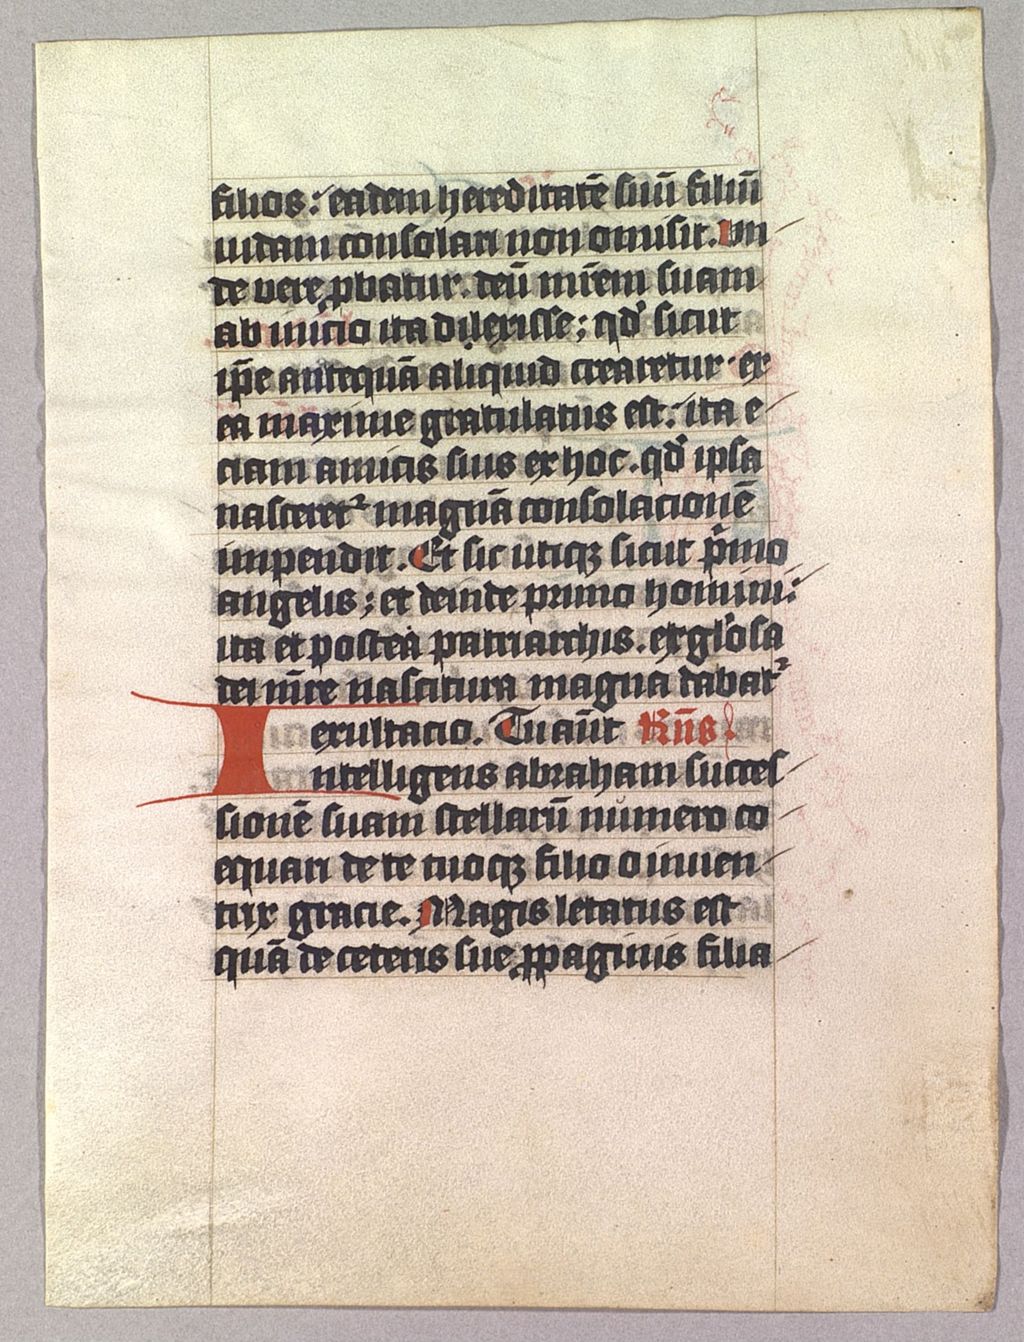 filios: eadem hereditatē suū filiū
uidam consolari non omisit. Vn
de vere ꝓbatur. deū mr̄em suam
ab inicio ita dilexisse; qđ sicut
ip̄e antequā aliquid crearetur ex
ea maxime gratulatus est: ita e
ciam amicis suis ex hoc. qđ ipsa
nasceretᷣ magnā consolacionē
impendit. Et sic utiqꝫ sicut p̄mo
angelis; et deinde primo homini:
ita et postea patriarchis. ex glōsa
dei mr̄e nascitura magna dabatᷣ
exultacio. Tu aūt Rn̄s
Intelligens abraham succes
sionē suam stellarū numero co
equari de te tuoqꝫ filio o inuen
trix gracie. Magis letatus est
quā de ceteris sue ꝓpaginis filia